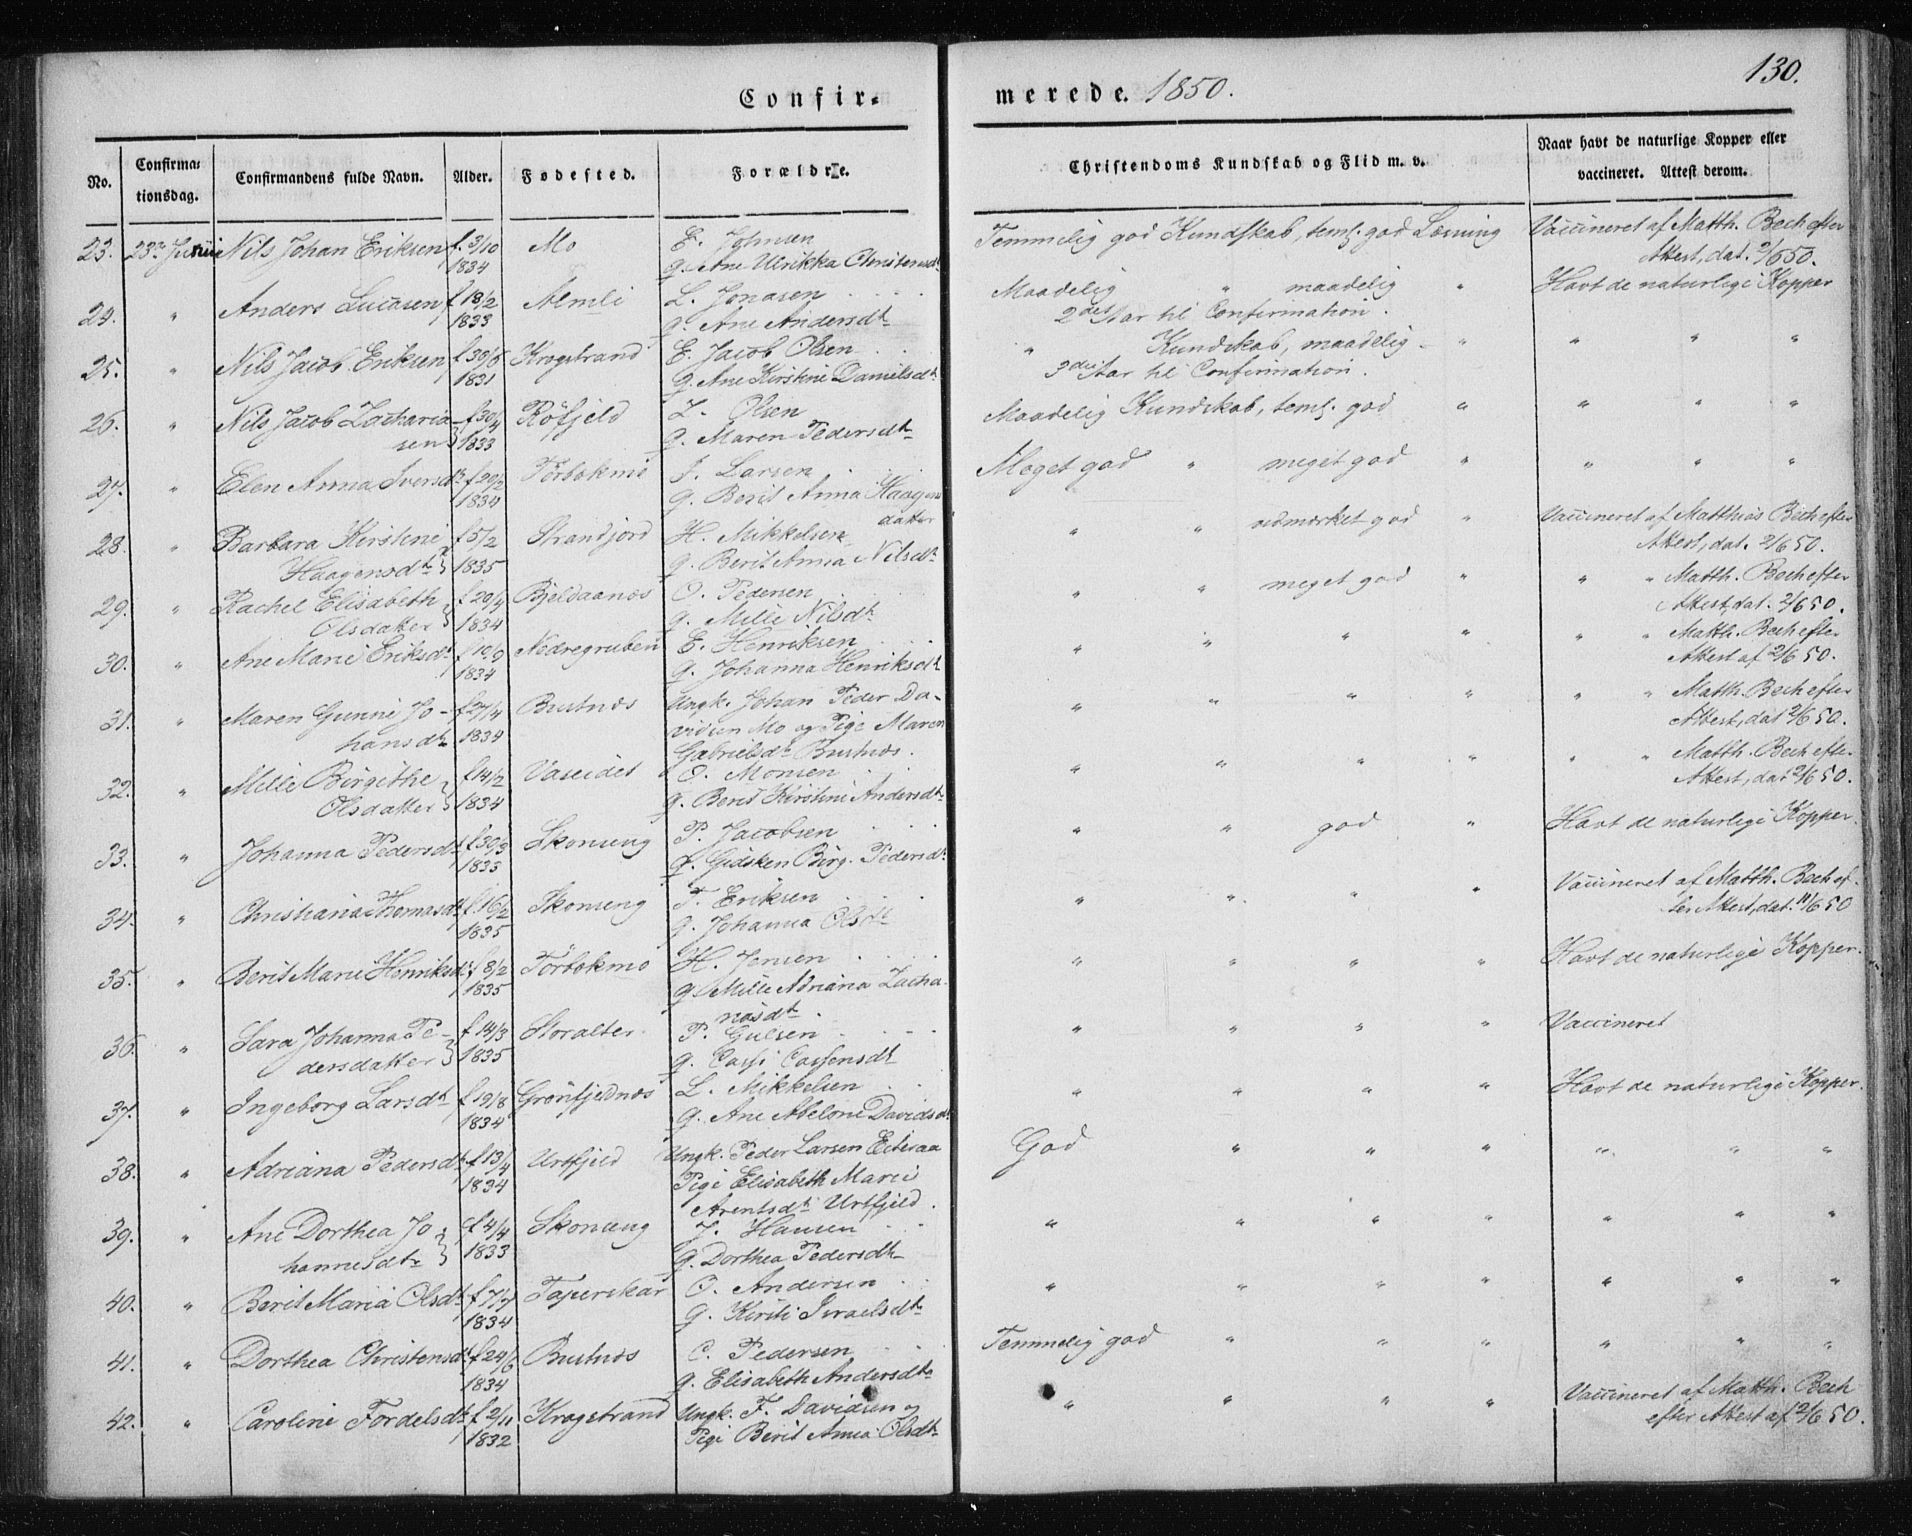 130.
Confir-
merede. 1850.
No.
Confirma-
tionsdag.
Confirmandens fulde Navn.
Alder.
Fødested.
Forældre.
Christendoms Kundskab og Flid m. v.
Naar havt de naturlige Kopper eller
vaccineret. Attest derom.
23. 23de Juni Nils Johan Eriksen f. 3/10 Mo E. Johnsen Temmelig god Kundskab, teml. god Læsning Vaccineret af Matth. Bech efter
1834 g. Ane Ulrikka Christensdt Attest, dat. 2/6 50.
24. " Anders Lucasen f 18/2 Almli L. Jonasen Maadelig " maadelig " Havt de naturlige Kopper
1833 g. Ane Andersdtr 2det Aar til Confirmation.
25. " Nils Jacob Eriksen f 30/6 Krogstrand E. Jacob Olsen " Kundskab, maadelig " " " "
1831 g. Ane Kirstine Danielsdtr 3die Aar til Confirmation.
26. " Nils Jacob Zacharia- f 30/4 Røfjeld Z. Olsen Maadelig Kundskab, teml. god " " " "
sen 1833 g. Maren Pedersdtr
27. " Elen Anna Iversdtr f 20/2 Tørbekmo I. Larsen Meget god " meget god " " " "
1834 g. Berit Anna Haagens
datter
28. " Barbara Kirstine f 5/2 Strandjord H. Mikkelsen " " udmærket god " Vaccineret af Matthias Bech efter
Haagensdtr 1835 g. Berit Anna Nilsdtr Attest, dat. 2/6 50.
29. " Rachel Elisabeth f 29/4 Bjeldaanes O. Pedersen " " meget god " " " Matth. Bech efter
Olsdatter 1834 g. Mille Nilsdtr Attest, dat. 2/6 50.
30. " Ane Marie Eriksdtr f 10/9 Nedregruben E. Henriksen " " " " " " Matth. Bech efter
1834 g. Johanna Henriksdt Attest af 2/6 50.
31. " Maren Gunni Jo- f 27/4 Bustnæs Ungk. Johan Peder Da- " " " " " " Matth. Bech efter
hansdtr 1834 vidsen Mo og Pige Maren Attest, dat 2/6 50.
Gabrielsdtr Bustnæs.
32. " Mille Birgithe f 14/2 Vaseidet O. Monsen " " " " " " Matth. Bech efter
Olsdatter 1834 g. Berit Kirstine Andersdtr Attest, dat 2/6 50.
33. " Johanna Pedersdt f 30/3 Skonseng P. Jacobsen " " god " Havt de naturlige Kopper.
1835 g. Gidsken Birg. Pedersdtr
34. " Christiana Thomasdt f 16/2 Skonseng T. Eriksen " " " " Vaccineret af Matth. Bech ef-
1835 g. Johanna Olsdt ter Attest, dat. 11/6 50
35. " Berit Marie Henriksdt f 8/2 Tørbekmo H. Jensen " " " " Havt de naturlige Kopper.
1835 g. Mille Adriana Zacha-
riasdt.
36. " Sara Johanna Pe- f 14/3 Storalter P. Gulsen " " " " Vaccineret
dersdatter 1835 g. Cassi Cassensdt
37. " Ingeborg Larsdt f 19/8 Grønfjeldnæs L. Mikkelsen " " " " Havt de naturlige Kopper.
1834 g. Ane Abelone Davidsdt
38. " Adriana Pedersdt f 13/4 Urtfjeld Ungk. Peder Larsen Eiteraa God " " " " " "
1834 Pige Elisabeth Marie
Arentsdt Urtfjeld.
39. " Ane Dorthea Jo- f 4/4 Skonseng J. Hansen " " " " " " "
hannesdtr 1833 g. Dorthea Pedersdt
40. " Berit Maria Olsdt f 7/7 Taperskar O. Andersen " " " " " " "
1834 g. Kirsti Israelsdtr
41. " Dorthea Christensdt f 24/6 Bustnæs C. Pedersen Temmelig god " " " " " "
1834 g. Elisabeth Andersdtr
42. " Caroline Fordelsdt f 2/11 Krogstrand Ungk. F. Davidsen og " " " " Vaccineret af Matth. Bech
1832 Pige Berit Anna Olsdtr efter Attest af 2/6 50.